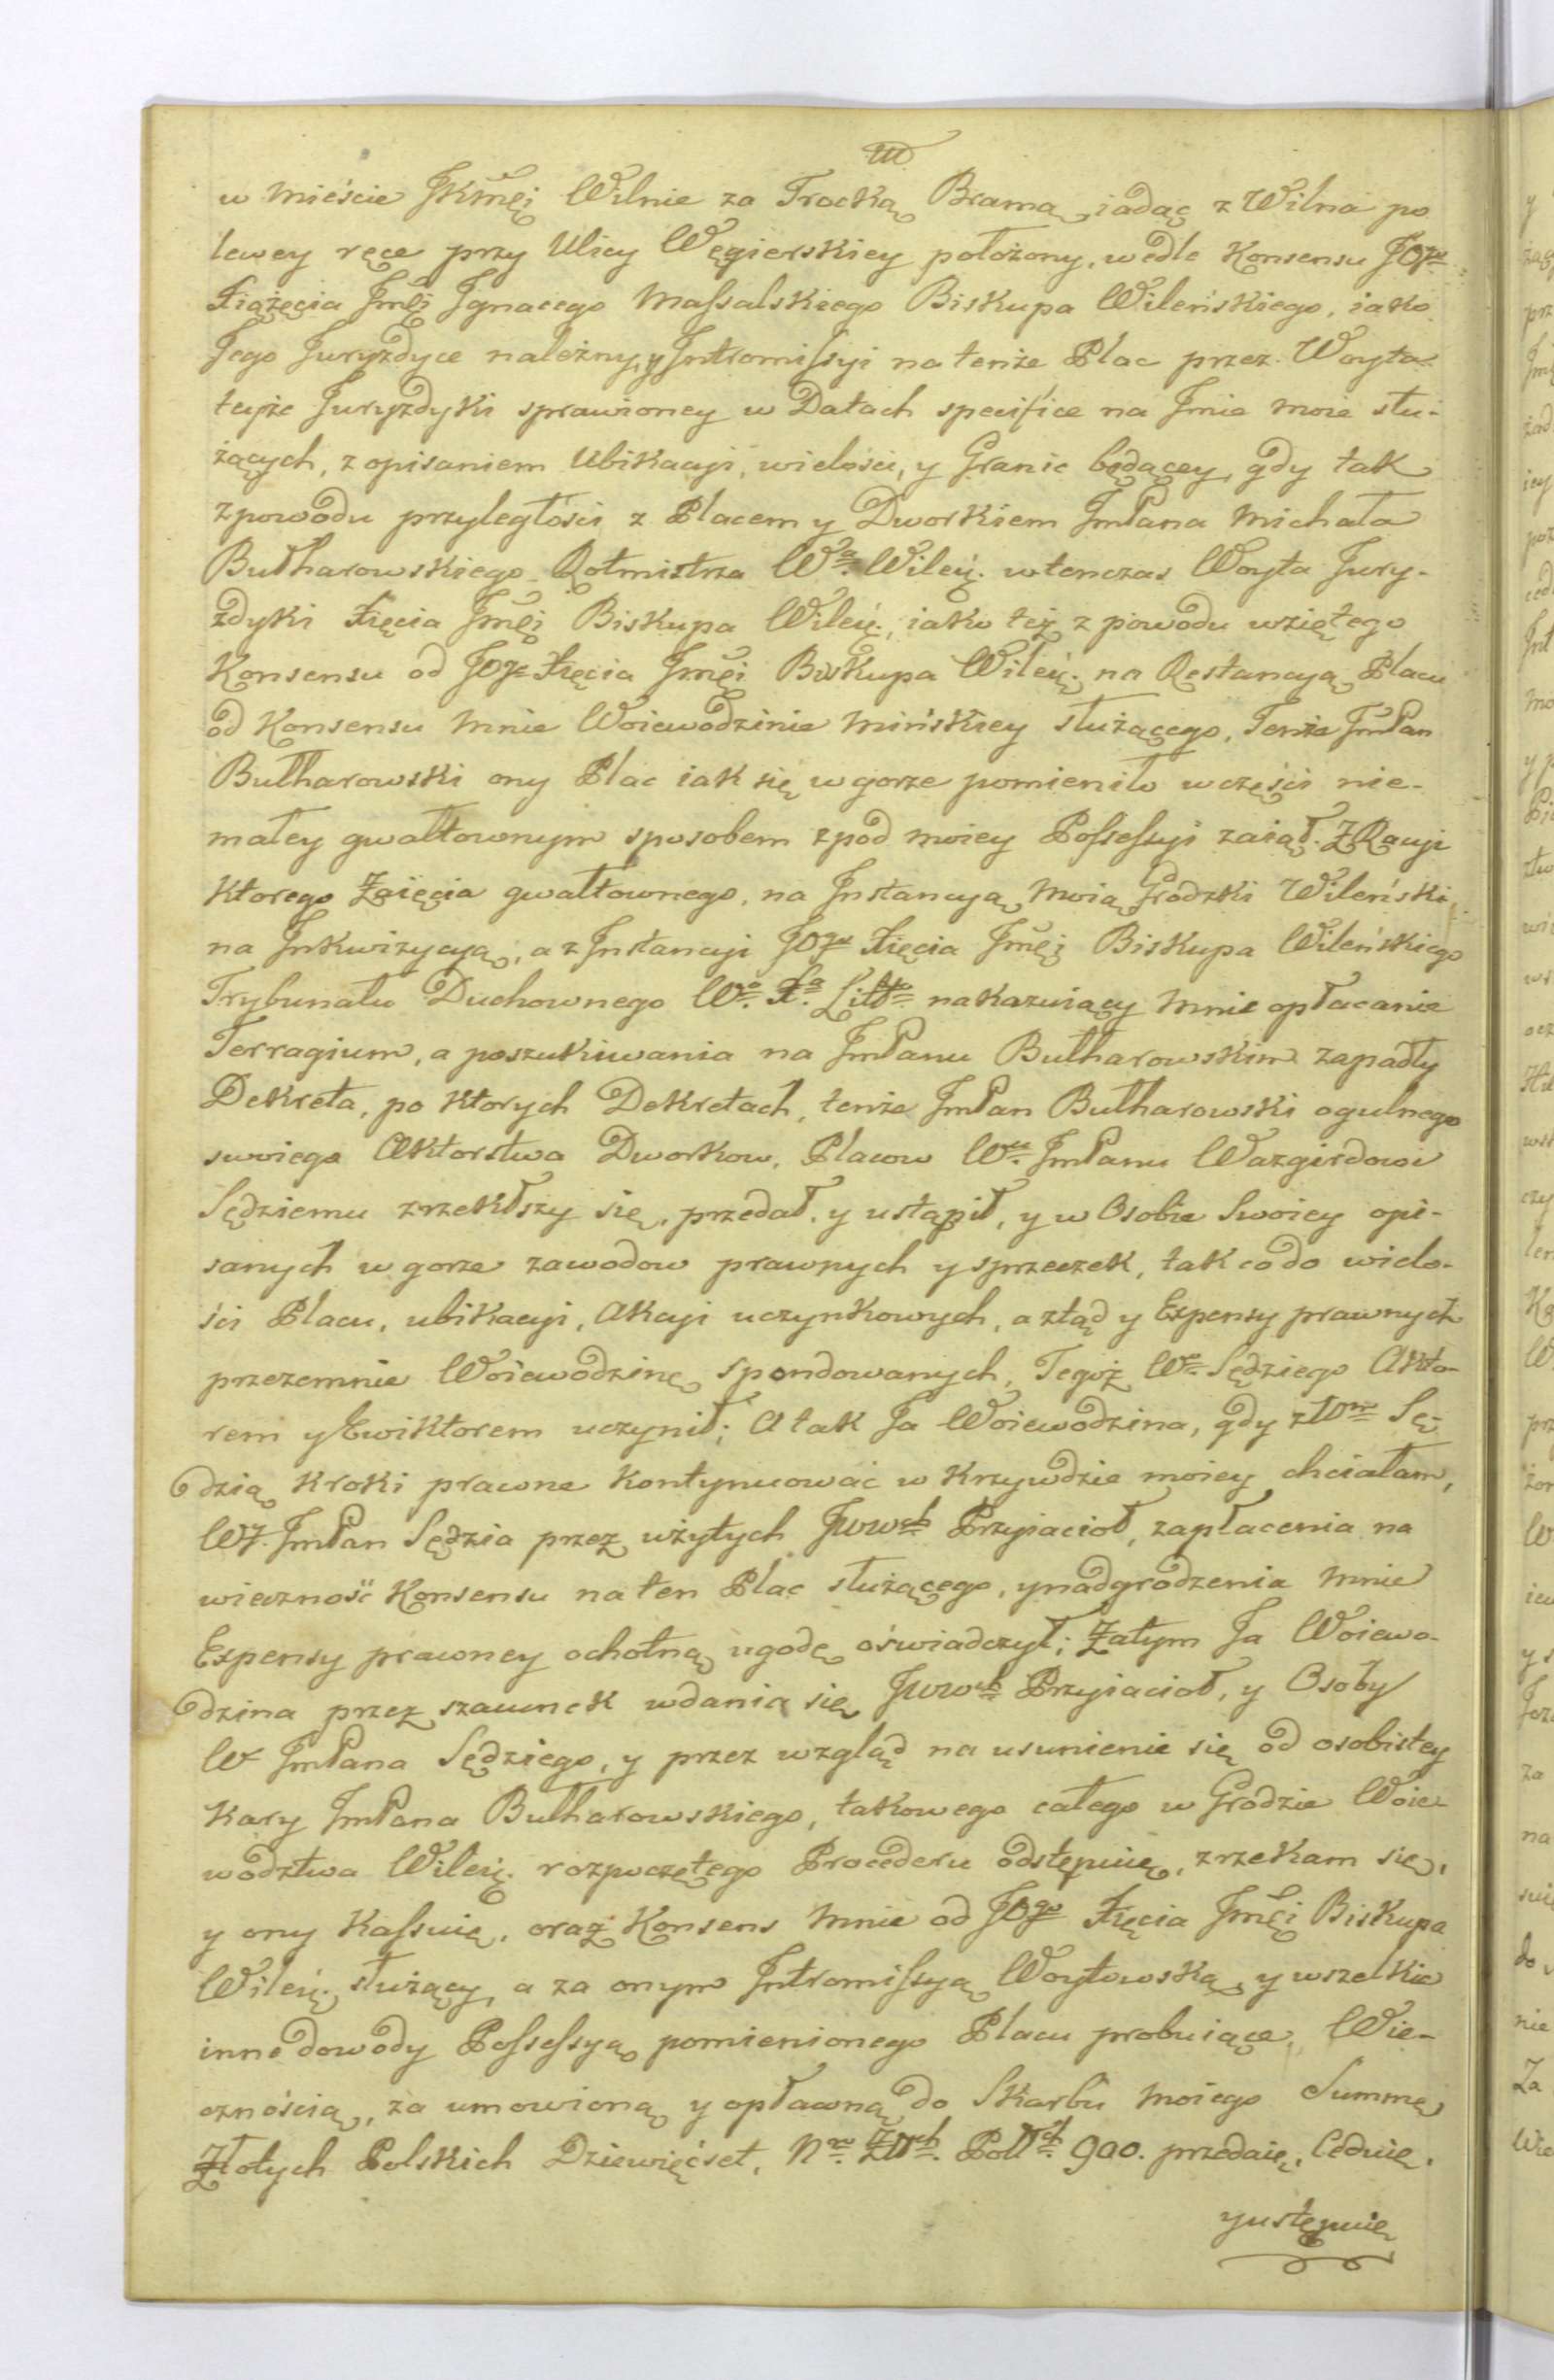 w Mieście JKMci Wilnie za Trocką Bramą, iadąc z Wilna po
lewey ręce przy Ulicy Węgierskiey położony, wedle Konsensu JO
Xiążęcia Jmci Jgnacego Massalskiego Biskupa Wileńskiego, iako
Jego Juryzdyce należny, y Jntromissyi na tenże Plac przez Woyta
teyże Juryzdyki sprawioney w Datach specifice na Jmie moie słu-
żących, z opisaniem Ubikacyi, wielości, y Granic będącey, gdy tak
z powodu przyległości z Placem y Dworkiem JmPana Michała
Bułharowskiego Rotmistrza Wa. Wileń. wtenczas Woyta Jury-
zdyki Xięcia Jmci Biskupa Wileń., iako też z powodu wziętego
Konsensu od JO Xięcia Jmci Biskupa Wileń. na Restancyą Placu
od Konsensu Mnie Woiewodzinie Mińskiey służącego, Tenże JmPan
Bułharowski ony Plac iak się w gorze pomieniło w części nie-
małey gwałtownym sposobem z pod moiey Possessyi zaiął. Z Racyi
ktorego Zaięcia gwałtownego, na Jnstancyą Moią Grodzki Wileński
na Jnkwizycyą, a z Jnstancyi JO Xięcia Jmci Biskupa Wileńskiego
Trybunału Duchownego Wgo X. Litto nakazuiący Mnie opłacanie
Terragium, a poszukiwania na JmPanu Bułharowskim zapadły
Dekreta, po ktorych Dekretach, tenże JmPan Bułharowski ogulnego
swoiego Aktorstwa Dworkow, Placow Wmu JmPanu Wazgirdowi
Sędziemu zrzekłszy się, przedał, y ustąpił, y w Osobie Swoiey opi-
sanych w gorze zawodow prawnych y sprzeczek, tak co do wielo-
ści Placu, ubikacyi, Akcyi uczynkowych, a ztąd y Expensy prawnych
przezemnie Woiewodzinę spendowanych, Tegoż Wo Sędziego Akto-
rem y Ewiktorem uczynił; A tak Ja Woiewodzina, gdy z Wm Sę-
dzią kroki prawne kontynuować w krzywdzie moiey chciałam,
WJ. JmPan Sędzia przez użytych JWWch Przyiacioł, zapłacenia na
wieczność Konsensu na ten Plac służącego, y nadgrodzenia Mnie
Expensy prawney ochotną ugodę oświadczył; Zatym Ja Woiewo-
dzina przez szacunek wdania się JWWch Przyiacioł, y Osoby
W JmPana Sędziego, y przez wzgląd na usunienie się od osobistey
Kary JmPana Bułharowskiego, takowego całego w Grodzie Woie-
wodztwa Wileń. rozpoczętego Procederu odstępuię, zrzekam się,
y ony kassuię, oraz Konsens Mnie od JOgo Xięcia Jmci Biskupa
Wileń. służący, a za onym Jntromissyą Woytowską, y wszelkie
inne dowody Possessyą pomienionego Placu probuiące, Wie-
cznością, za umowioną y opłacną do Skarbu Moiego Summę
Złotych Polskich Dziewięćset, Nro Złłch. Pollch. 900. przedaię, Ceduię,
y ustępuię